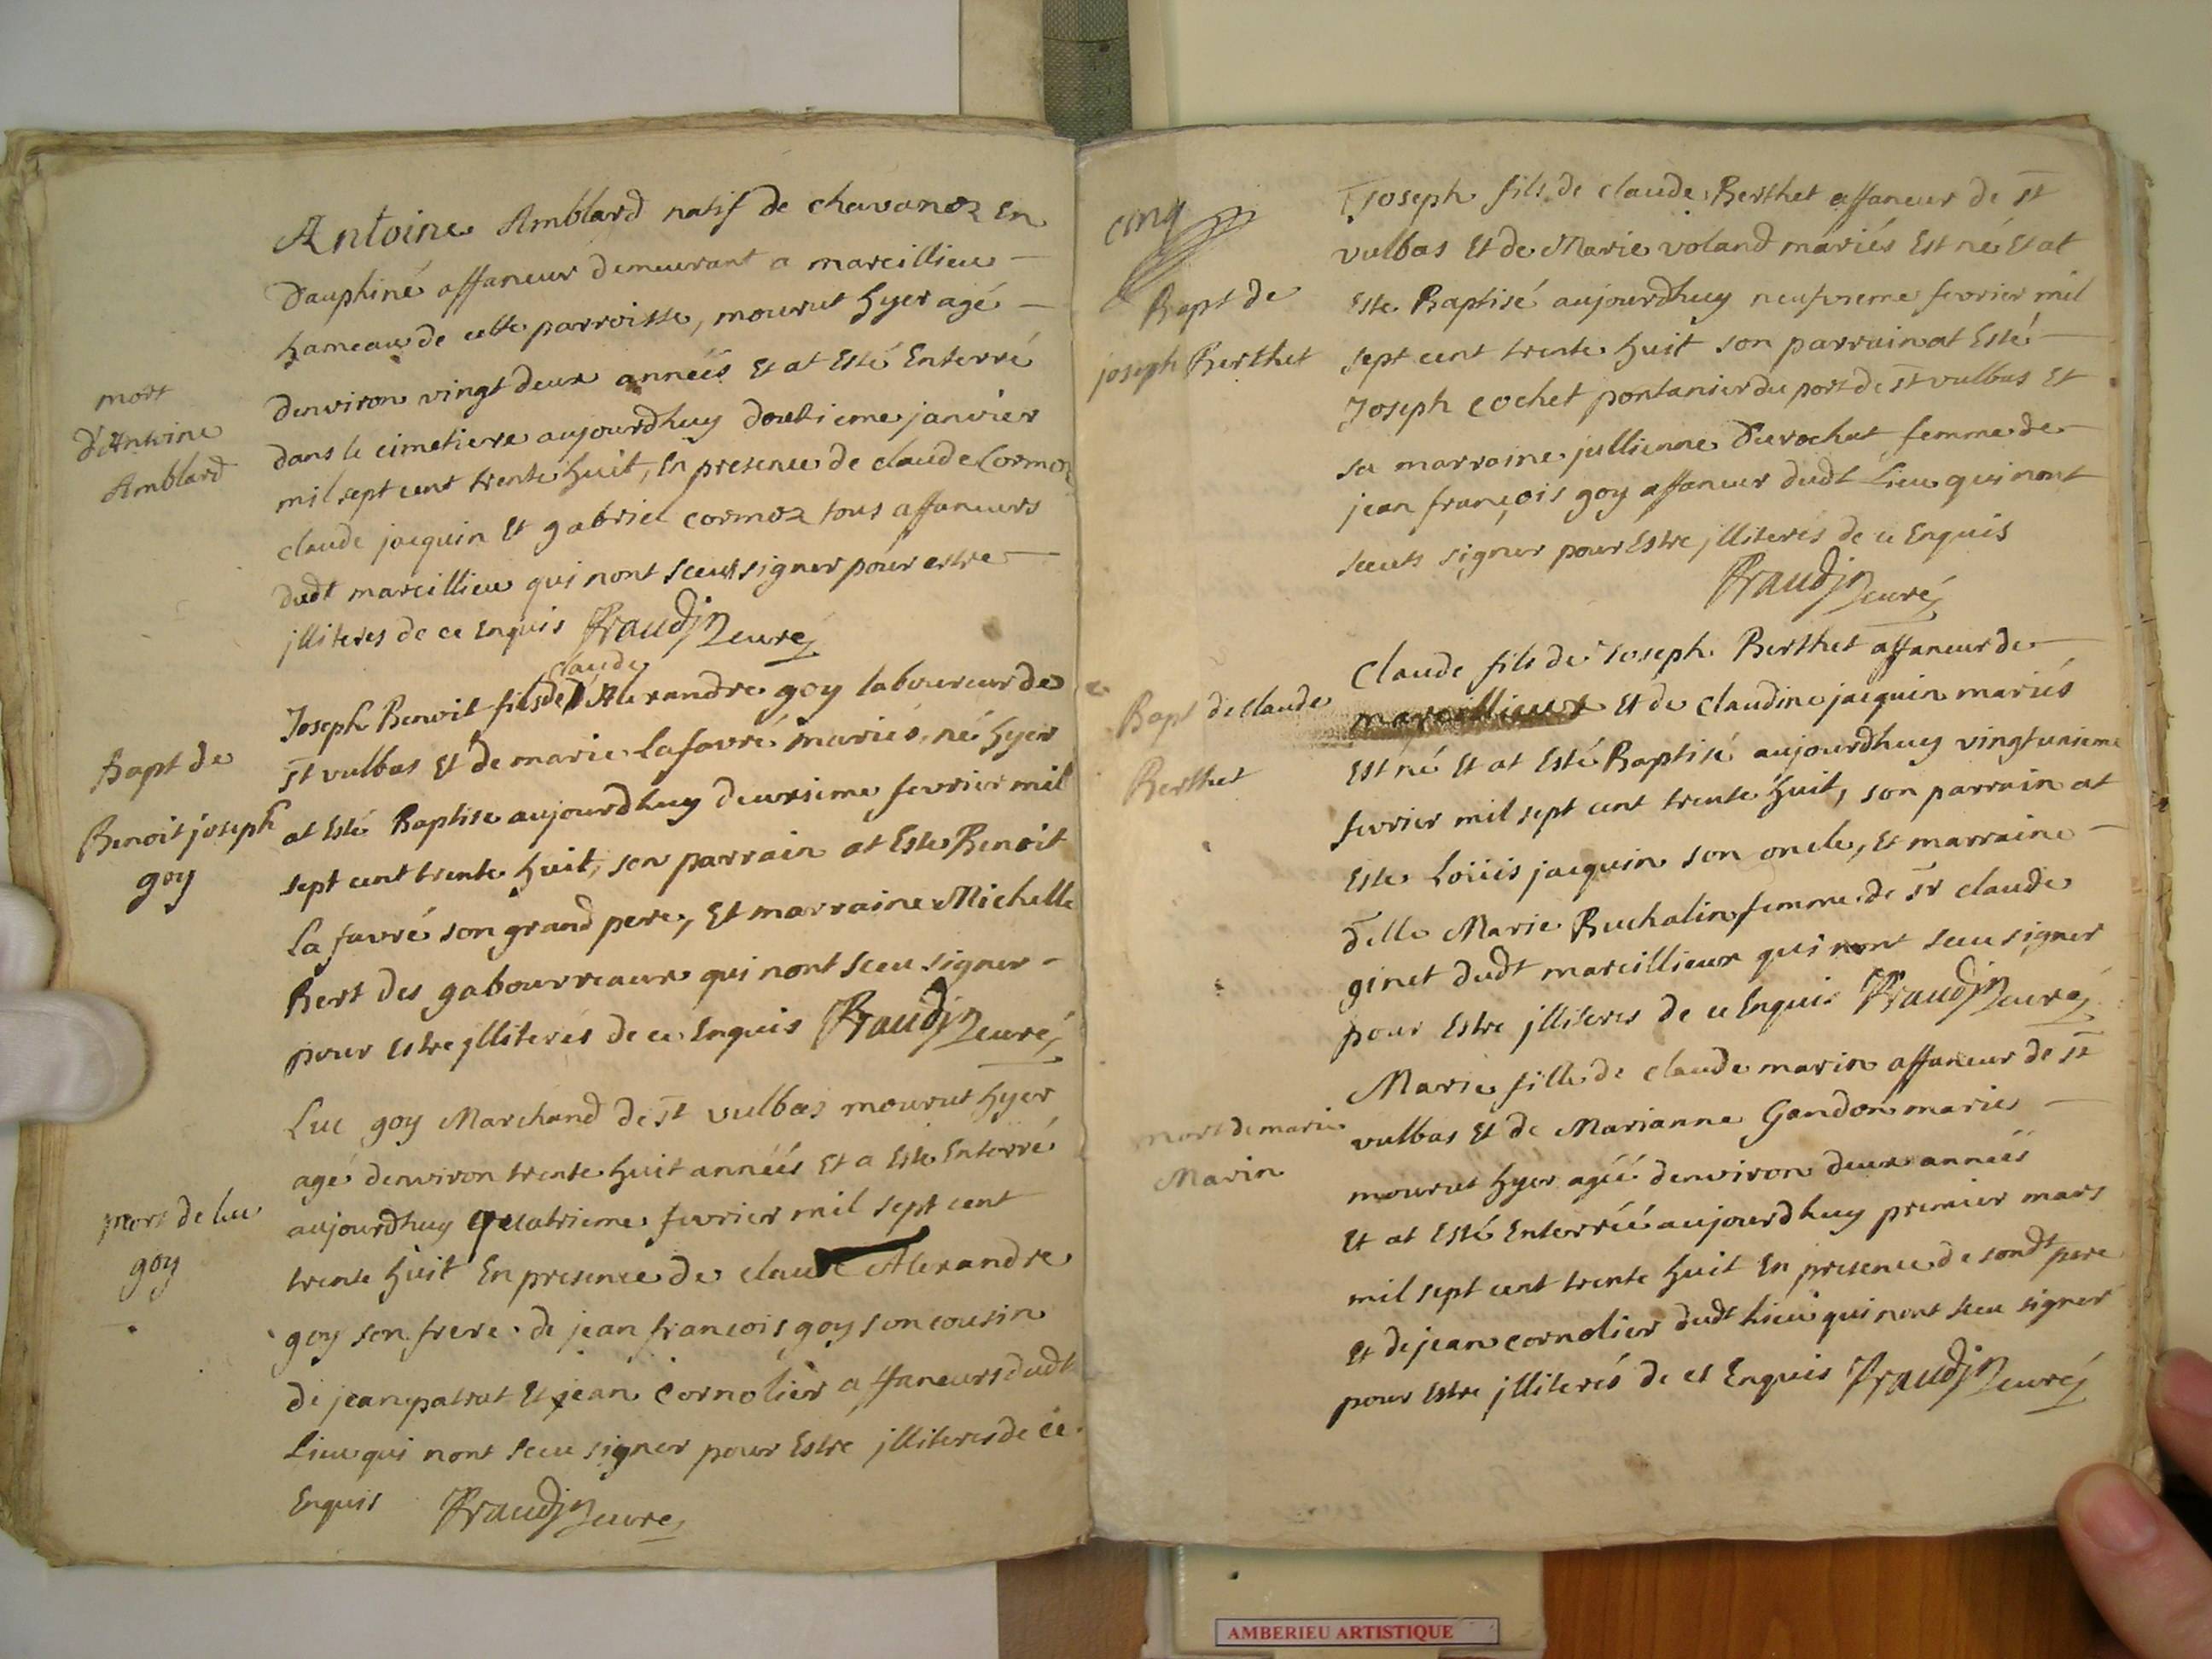 mort
d'Antoine
Amblard
Antoine Amblard natif de chavanoz En
Dauphiné affaneur demeurant a marcillieu
hameau de cette parroisse, mourut hyer agé
denviron vingt deux années Et at Esté Enterré
dans le cimetiere aujourdhuy douzieme janvier
mil sept cent trente huit, En presence de claude Cormoz
claude jacquin Et gabriel cormoz tous affaneurs
dudt marcillieu qui nont sceus signer pour estre
jlliteres de ce Enquis Fraudin curé
Bapt de
Benoit joseph
goy
claude
Joseph Benoit fils de Alexandre goy laboureur de
St vulbas Et de marie Lafavré mariés, né hyer
at Esté Baptise aujourdhuy deuxsieme fevrier mil
sept cent trente huit, son parrain at Este Benoit
La favré son grand pere, Et marraine Michelle
Bert des gabourreaux qui nont sceu signer
pour Estre jlliterés de ce Enquis Fraudin curé
mort de luc
goy
Luc goy Marchand de St vulbas mourut hyer
agé denviron trente huit années Et a Este Enterré
aujourdhuy quatrieme fevrier mil sept cent
trente huit En presence de claude Alexandre
goy son frere de jean françois goy son cousin
de jean patrat Et jean Cornolier affaneurs dudt
Lieu qui nont sceu signer pour Estre jlliteres de ce
Enquis Fraudin curé
cinq
Bapt de
joseph Berthet
Joseph fils de claude Berthet affaneur de St
vulbas Et de Marie voland mariés Est né Et at
Este Baptisé aujourdhuy neufvieme fevrier mil
sept cent trente huit son parrain at Esté
Joseph cochet pontanier du port de St vulbas Et
sa marraine jullienne Durochat femme de
jean françois goy affaneur dudt Lieu qui nont
sceuts signer pour Estre jlliterés de ce Enquis
Fraudin curé
Bapt de Claude
Berthet
Claude fils de Joseph Berthet affaneur de
marcillieux Et de Claudine jacquin mariés
Est né Et at Esté Baptisé aujourdhuy vingtunieme
fevrier mil sept cent trente huit, son parrain at
Este Loüis jacquin son oncle, Et marraine
delle Marie Buchalin femme de Sr claude
ginet dudt marcillieux qui nont sceu signer
pour Estre jlliteres de ce Enquis Fraudin curé
mort de marie
Marin
Marie fille de claude marin affaneur de St
vulbas Et de Marianne Gandon mariés
mourut hyer agéé denviron deux années
Et at Esté Enterréé aujourdhuy premier mars
mil sept cent trente huit En presence de sondt pere
Et de jean cornolier dudt Lieu qui nont sceu signer
pour Estre jlliterés de ce Enquis Fraudin curé
AMBERIEU ARTISTIQUE